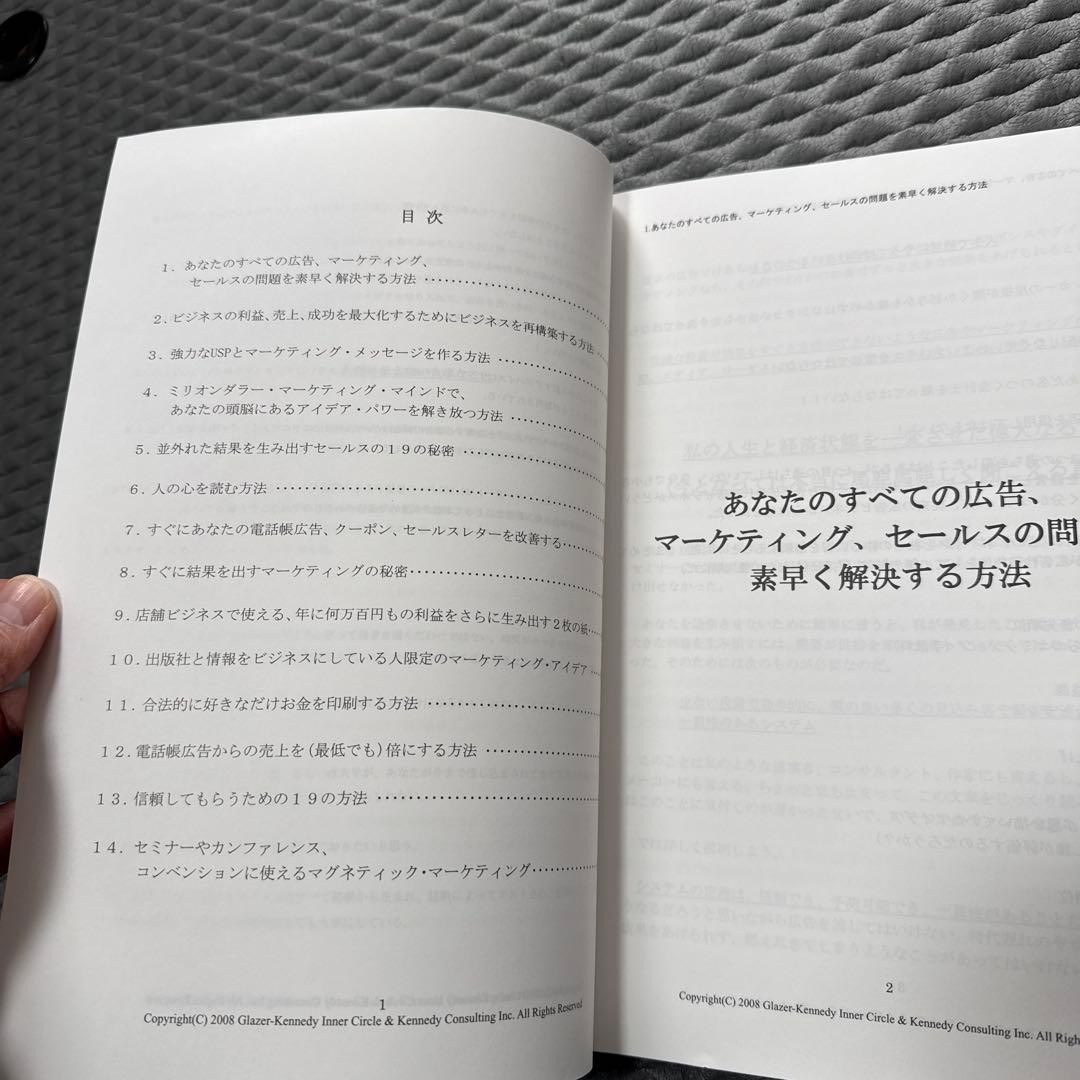 目 次
1．あなたのすべての広告、マーケティング、
セールスの問題を素早く解決する方法 ‥‥‥‥‥‥‥‥‥‥
2．ビジネスの利益、売上、成功を最大化するためにビジネスを再構築する方法 ‥
3．強力なUSPとマーケティング・メッセージを作る方法 ‥‥‥‥‥‥
4．ミリオンダラー・マーケティング・マインドで、
あなたの頭脳にあるアイデア・パワーを解き放つ方法 ‥‥‥‥‥
5．並外れた結果を生み出すセールスの19の秘密 ‥‥‥‥‥‥‥
6．人の心を読む方法 ‥‥‥‥‥‥‥‥‥‥‥‥‥‥‥‥‥‥
7．すぐにあなたの電話帳広告、クーポン、セールスレターを改善する‥‥
8．すぐに結果を出すマーケティングの秘密‥‥‥‥‥‥‥‥‥‥
9．店舗ビジネスで使える、年に何万百円もの利益をさらに生み出す2枚の紙‥
10．出版社と情報をビジネスにしている人限定のマーケティング・アイデア ‥
11．合法的に好きなだけお金を印刷する方法 ‥‥‥‥‥‥‥‥‥
12．電話帳広告からの売上を（最低でも）倍にする方法 ‥‥‥‥‥‥
13．信頼してもらうための19の方法 ‥‥‥‥‥‥‥‥‥‥‥‥
14．セミナーやカンファレンス、
コンベンションに使えるマグネティック・マーケティング‥‥‥‥
1
Copyright(C) 2008 Glazer-Kennedy Inner Circle & Kennedy Consulting Inc. All Rights Reserved
1.あなたのすべての広告、マーケティング、セールスの問題を素早く解決する方法
あなたのすべての広告、
マーケティング、セールスの問
素早く解決する方法
2
Copyright(C) 2008 Glazer-Kennedy Inner Circle & Kennedy Consulting Inc. All Righ